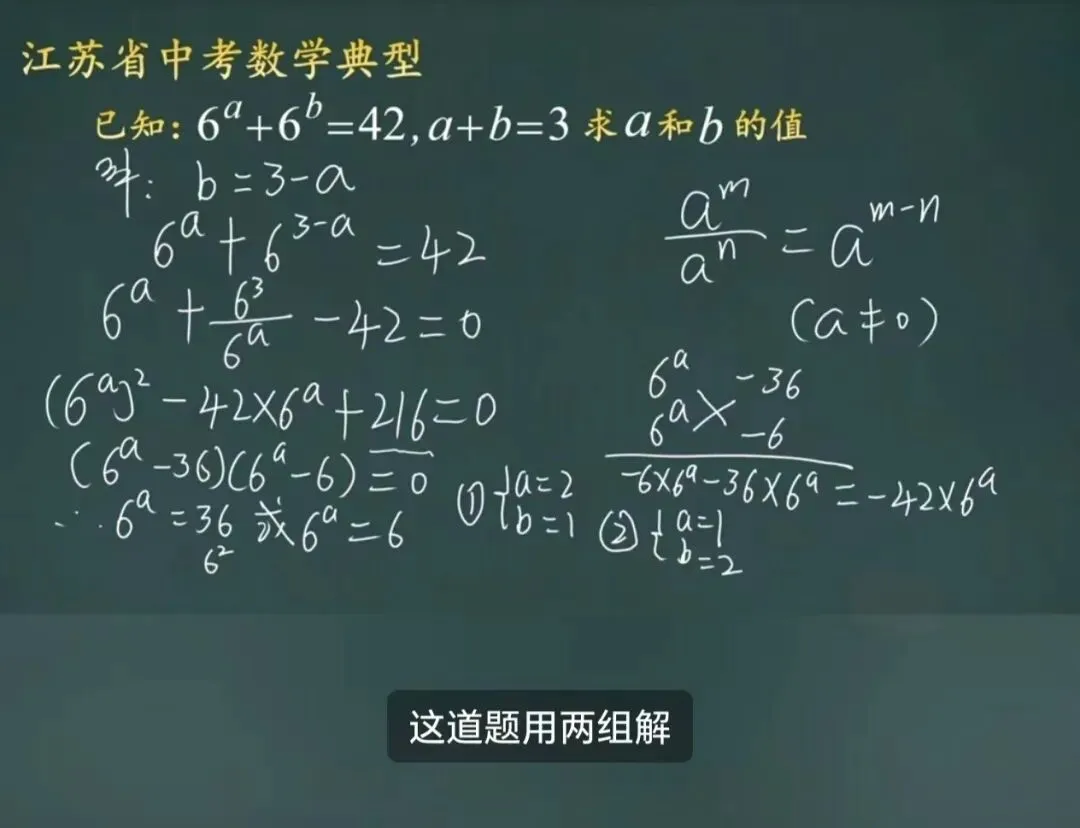 江苏省中考数学典型
已知: 6^a+6^b=42, a+b=3 求a和b的值
解: b=3-a
6^a+6^{3-a}=42
6^a+\frac{6^3}{6^a}-42=0
(6^a)^2-42×6^a+216=0
(6^a-36)(6^a-6)=0
∴6^a=36或6^a=6
6^2
① {a=2
b=1
\frac{a^m}{a^n}=a^{m-n}
(a≠0)
6^a -36
6^a -6
-6×6^a-36×6^a=-42×6^a
② {a=1
b=2
这道题用两组解